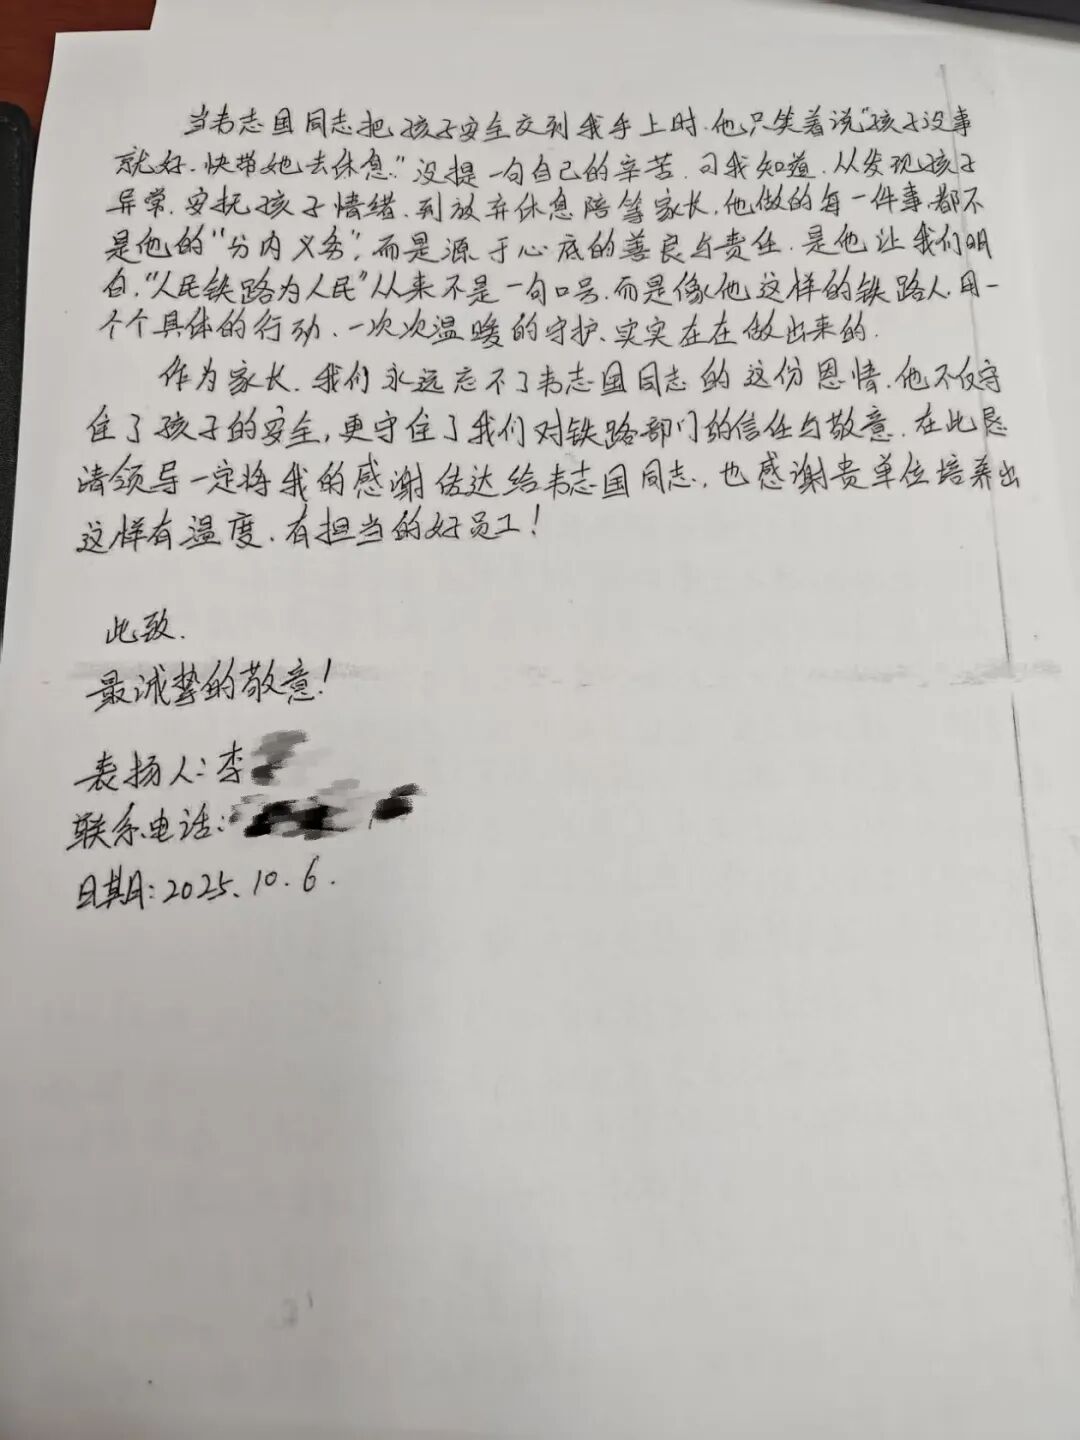 当韦志国同志把孩子安全交到我手上时,他只笑着说“孩子没事
就好,快带她去休息”没提一句自己的辛苦.可我知道,从发现孩子
异常,安抚孩子情绪,到放弃休息陪等家长,他做的每一件事,都不
是他的“分内义务”,而是源于心底的善良与责任.是他让我们明
白,“人民铁路为人民”从来不是一句口号,而是像他这样的铁路人,用一
个个具体的行动、一次次温暖的守护、实实在在做出来的.
作为家长,我们永远忘不了韦志国同志的这份恩情,他不仅守
住了孩子的安全,更守住了我们对铁路部门的信任与敬意.在此恳
请领导一定将我的感谢传达给韦志国同志,也感谢贵单位培养出
这样有温度、有担当的好员工!
此致.
最诚挚的敬意!
表扬人:李
联系电话:
日期:2025.10.6.